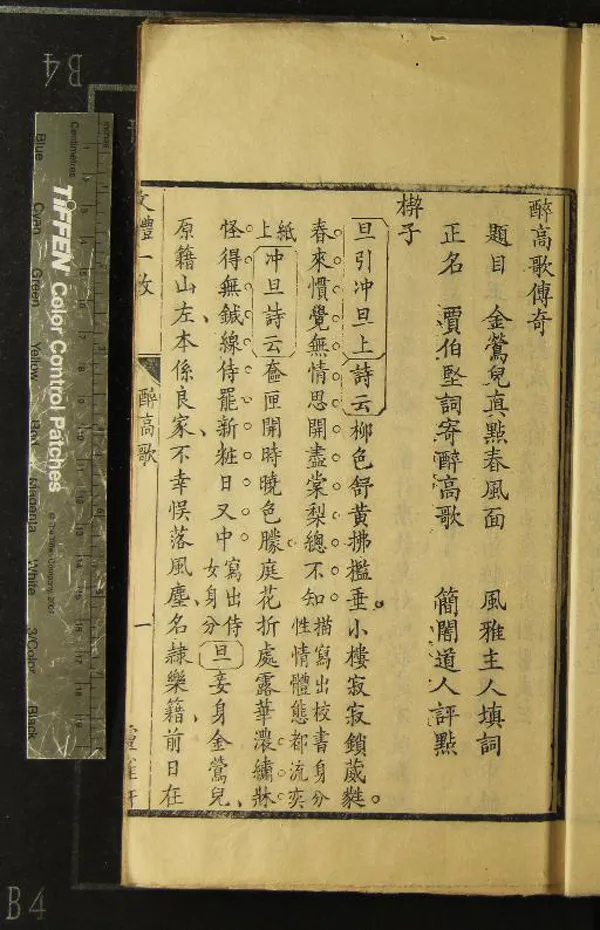 醉高歌傳奇
題目 金鶯兒真點春風面 風雅主人填詞
正名 賈伯堅詞寄醉高歌 簡闇道人評點
楔子
旦引冲旦上詩云柳色舒黄拂檻垂。小樓寂寂鎖葳蕤。
春來慣覺無情思開盡棠梨總不知描寫出校書身分性情體態都流奕
紙上冲旦詩云奩匣開時曉色朦庭花折處露華濃繡牀
怪得無鍼線侍罷新粧日又中寫出侍女身分旦妾身金鶯兒、
原籍山左、本係良家、不幸悮落風塵、名隸樂籍、前日在
文禮一攷
醉高歌
一
B4
B4
TIFFEN Color Control Patches
© The Tiffen Company, 2007
Centimetres
Blue
Cyan
Green
Yellow
Red
Magenta
White
3/Color
Black